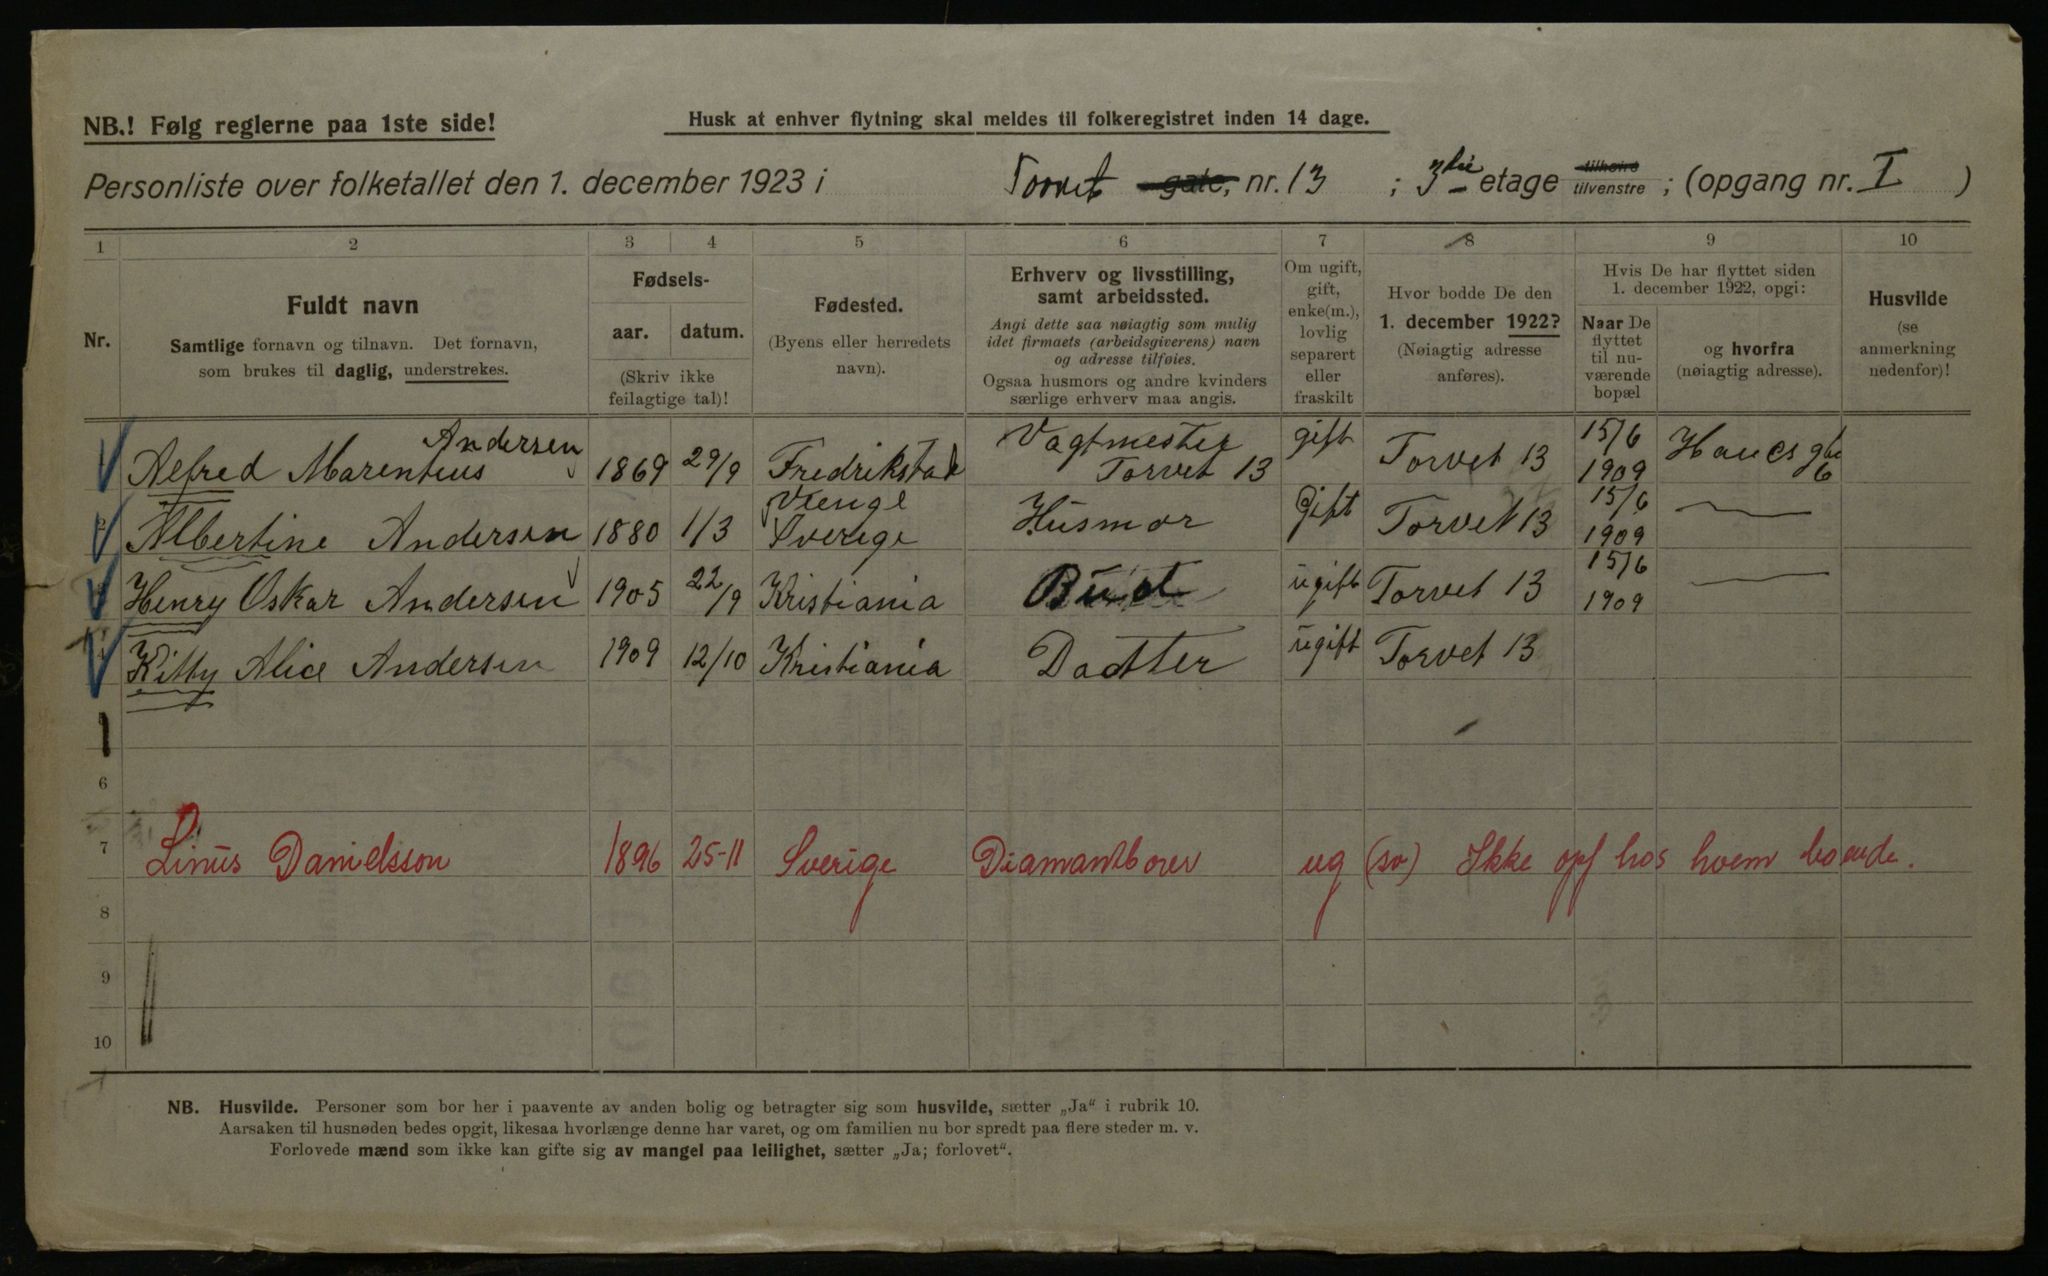 NB.! Følg reglerne paa 1ste side!
Husk at enhver flytning skal meldes til folkeregistret inden 14 dage.
Personliste over folketallet den 1. december 1923 i Torvet gate, nr. 13 ; 3die etage tilhøire tilvenstre ; (opgang nr. I )
1 2 3 4 5 6 7 8 9 10
Nr.
Fuldt navn
Samtlige fornavn og tilnavn. Det fornavn,
som brukes til daglig, understrekes.
Fødsels-
aar. datum.
(Skriv ikke
feilagtige tal)!
Fødested.
(Byens eller herredets
navn).
Erhverv og livsstilling,
samt arbeidssted.
Angi dette saa nøiagtig som mulig
idet firmaets (arbeidsgiverens) navn
og adresse tilføies.
Ogsaa husmors og andre kvinders
særlige erhverv maa angis.
Om ugift,
gift,
enke(m.),
lovlig
separert
eller
fraskilt
Hvor bodde De den
1. december 1922?
(Nøiagtig adresse
anføres).
Hvis De har flyttet siden
1. december 1922, opgi:
Naar De
flyttet
til nu-
værende
bopæl
og hvorfra
(nøiagtig adresse).
Husvilde
(se
anmerkning
nedenfor)!
Andersen
Alfred Marentius 1869 29/9 Fredrikstad Vagtmester Torvet 13 gift Torvet 13 15/6 1909
2 Albertine Andersen 1880 1/3 Sverige Husmor Gift Torvet 13 15/6 1909 —
3 Henry Oskar Andersen 1905 22/9 Kristiania Bud ugift Torvet 13 15/6 1909 —
4 Kitty Alice Andersen 1909 12/10 Kristiania Datter ugift Torvet 13
6
7 Linus Danielsson 1896 25-11 Sverige Diamantborer ug (sv) Ikke opf hos hvem boende.
8
9
10
NB. Husvilde. Personer som bor her i paavente av anden bolig og betragter sig som husvilde, sætter „Ja“ i rubrik 10.
Aarsaken til husnøden bedes opgit, likesaa hvorlænge denne har varet, og om familien nu bor spredt paa flere steder m. v.
Forlovede mænd som ikke kan gifte sig av mangel paa leilighet, sætter „Ja; forlovet“.